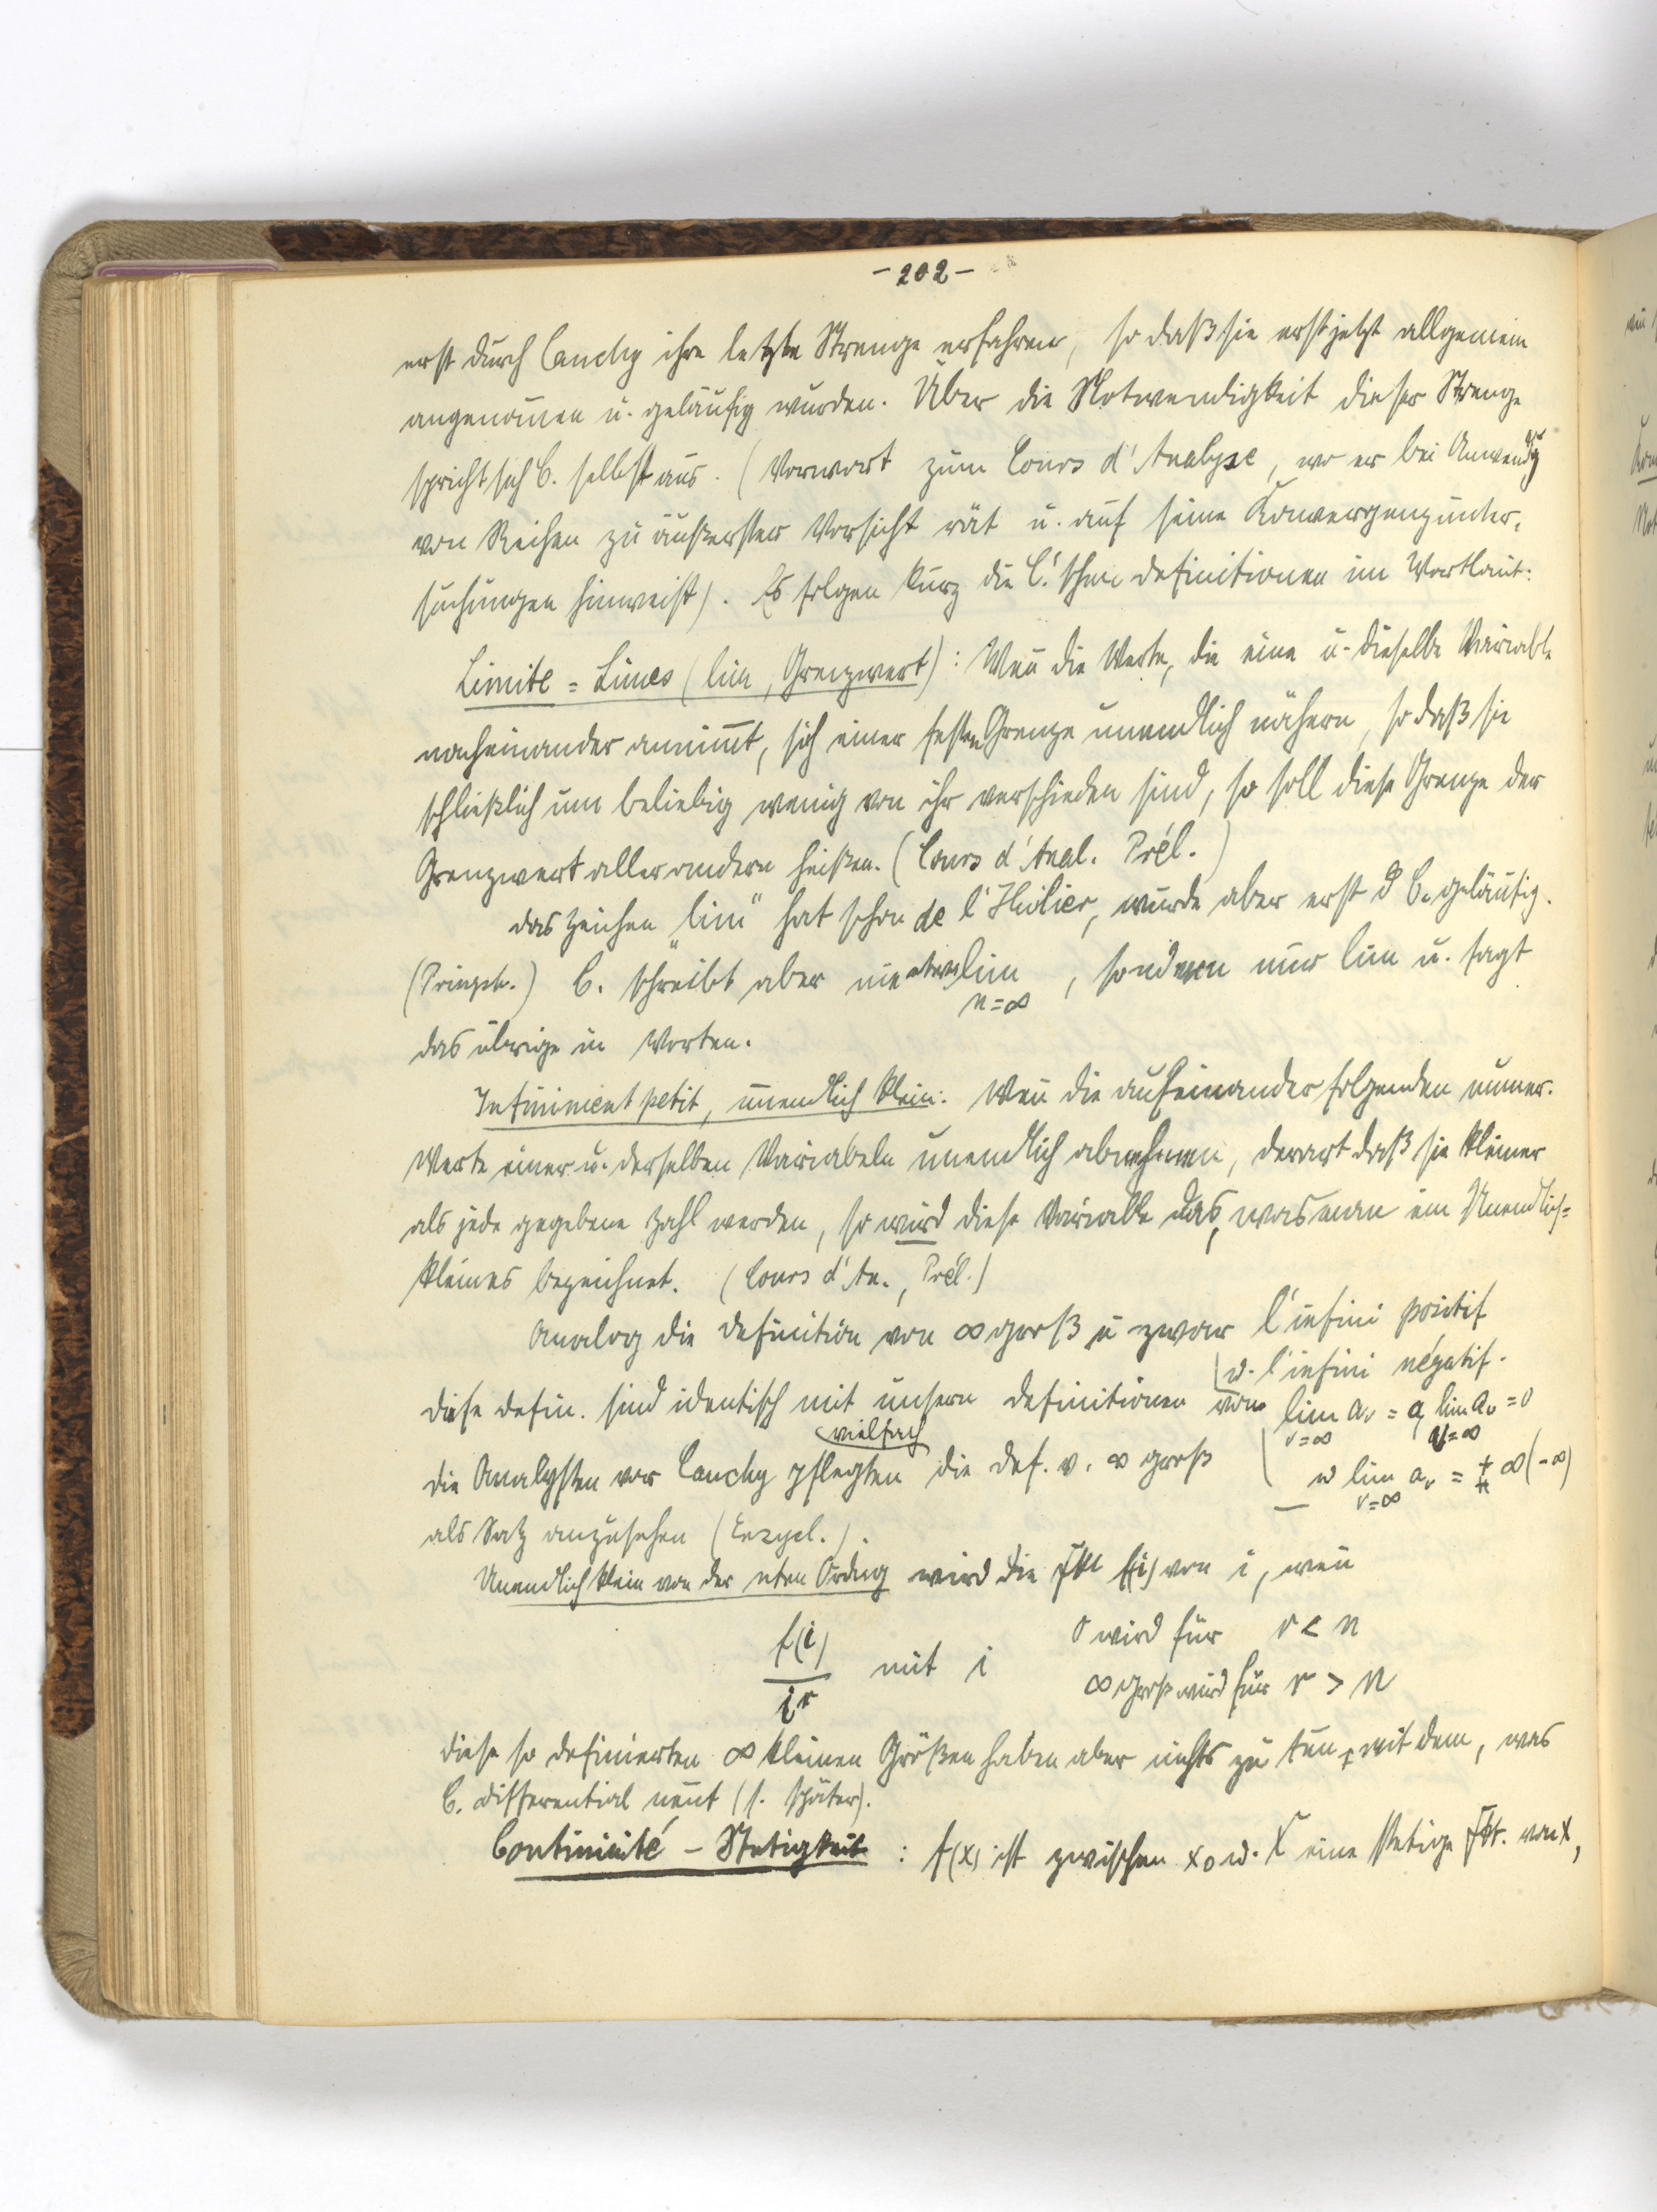 - 202 -
erst durch Cauchy ihre letzte Strenge erfahren, so daß sie erst jetzt allgemein
angenom̄en u. geläufig wurden. Über die Notwendigkeit dieser Strenge
spricht sich C. selbst aus. (Vorwort zum Cours d'Analyse, wo er bei Anwendg
von Reihen zu äußerster Vorsicht rät u. auf seine Konvergenzunter-
suchungen hinweist). Es folgen kurz die C.'schen Definitionen im Wortlaut:
Limite = Limes (lim, Grenzwert): Wen̄ die Werte, die eine u. dieselbe Variable
nacheinander annim̄t, sich einer festen Grenze unendlich nähern, so daß sie
schließlich um beliebig wenig von ihr verschieden sind, so soll diese Grenze der
Grenzwert aller andern heißen. (Cours d'Anal. Prél.)
Das Zeichen „lim" hat schon de l'Huilier, wurde aber erst d C. geläufig.
(Pringsh.) C. schreibt aber nie etwa lim , sondern nur lim u. sagt
n=∞
das übrige in Worten.
Infiniment petit, unendlich klein: Wen̄ die aufeinander folgenden numer.
Werte einer u. derselben Variabeln unendlich abnehmen, derart daß sie kleiner
als jede gegebene Zahl werden, so wird diese Variable das, was man ein Unendlich=
kleines bezeichnet. (Cours d'An., Prél.)
Analog die Definition von ∞ groß u zwar l'infini positif
u. l'infini négatif.
Diese Defin. sind identisch mit unsern Definitionen von lim aᵥ = a, lim aᵥ = 0
ν=∞ ν=∞
vielfach
Die Analysten vor Cauchy pflegten die Def. v. ∞ groß u lim aᵥ = + ∞ (-∞)
ν=∞
als Satz anzusehen (Enzycl.).
Unendlich klein von der nten Ordng wird die Fkt f(i) von i, wen̄
f(i) / iʳ mit i 0 wird für r < n
∞ groß wird für r > n
Diese so definierten ∞ kleinen Größen haben aber nichts zu tun mit dem, was
C. Differential nen̄t (s. später).
Continuité – Stetigkeit : f(x) ist zwischen x₀ u. X eine stetige Fkt. von x,